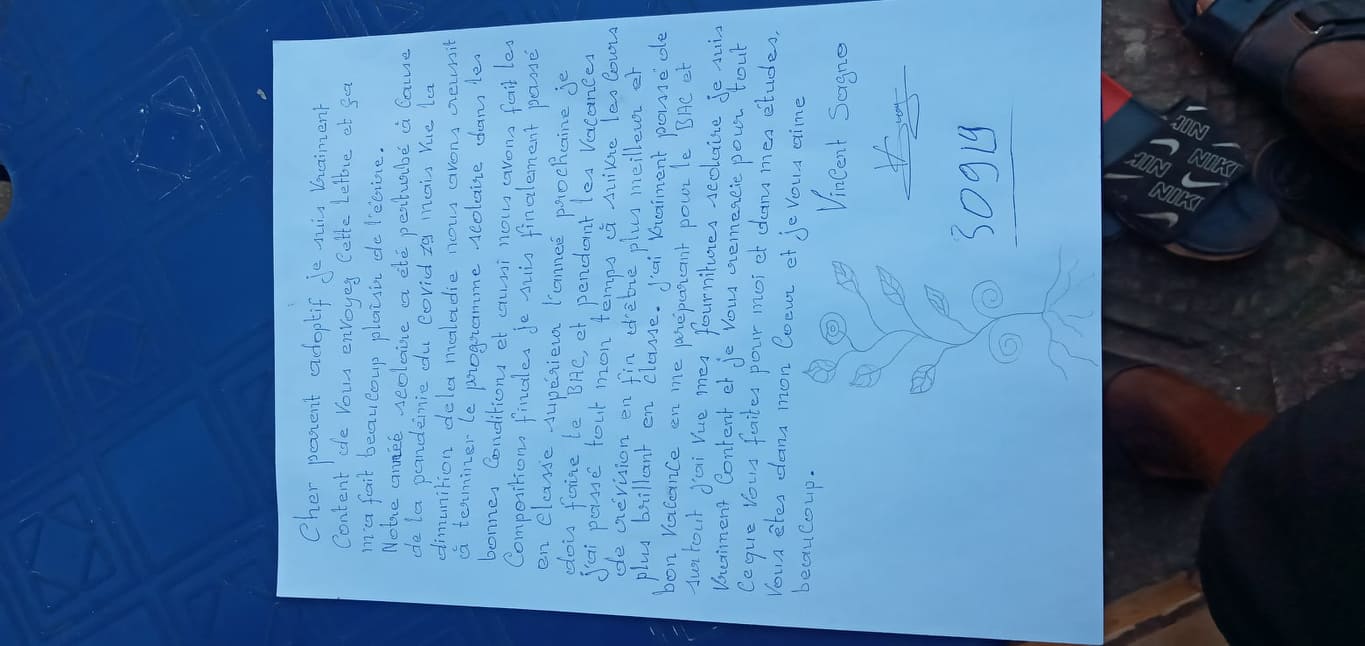 Cher parent adoptif je suis vraiment
Content de vous envoyez cette lettre et ça
m'a fait beaucoup plaisir de l'écrire.
Notre année scolaire a été perturbé à cause
de la pandémie du Covid 19 mais vue la
dimunition de la maladie nous avons reussit
à terminer le programme scolaire dans les
bonnes Conditions et aussi nous avons fait les
Compositions finales je suis finalement passé
en classe supérieur l'anneé prochaine je
dois faire le BAC, et pendant les vacances
j'ai passé tout mon temps à suivre les cours
de révision en fin d'être plus meilleur et
plus brillant en classe. j'ai vraiment passé de
bon vacance en me préparant pour le BAC et
surtout j'ai vue mes fournitures scolaire je suis
vraiment Content et je vous remercie pour tout
ce que vous faites pour moi et dans mes études,
vous êtes dans mon Coeur et je vous aime
beaucoup.
Vincent Sagno
30919
NIKE
NIKE
NIKE
NIKE